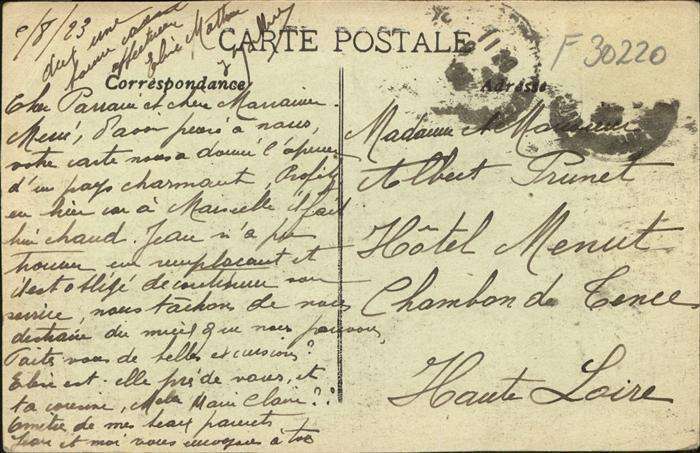 5/8/23
CARTE POSTALE
F 30220
Correspondance
Adresse
Cher Parrain et chère Marraine.
Merci, d'avoir pensé à nous,
votre carte nous a donné l'aperçu
d'un pays charmant, Profitez
en bien car à Marseille il fait
bien chaud. Jean n'a pu
trouver un remplaçant et
il est obligé de continuer son
service, nous tâchons de nous
distraire du mieux que nous pouvons,
Faites vous de belles excursions?
Elise est-elle près de vous, et
ta cousine, Melle Marie Claire??
de mes beaux parents
Jean et moi vous envoyons à tous
deux une
affection
Madame et Monsieur
Albert Prunet
Hôtel Menut
Chambon de Tence
Haute Loire